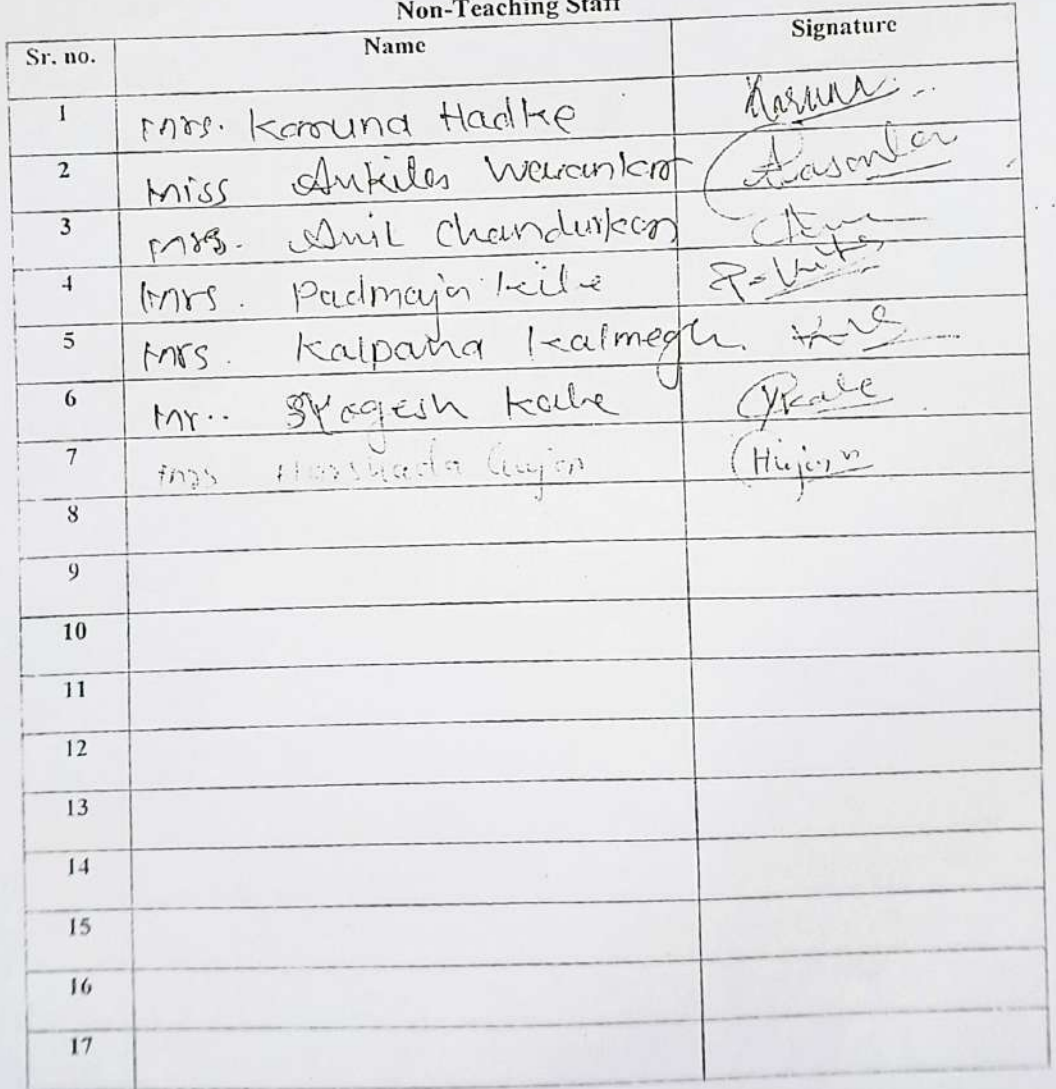 Non-Teaching Staff
Sr. no. Name Signature
1 Mrs. Karuna Hadke Karuna
2 Miss Ankita Warankar
3 Mrs. Anil Chandurkar
4 Mrs. Padmaja
5 Mrs. Kalpana Kalmegh
6 Mr.. Yogesh Kale YKale
7 Mrs Harshada Gujar
8
9
10
11
12
13
14
15
16
17